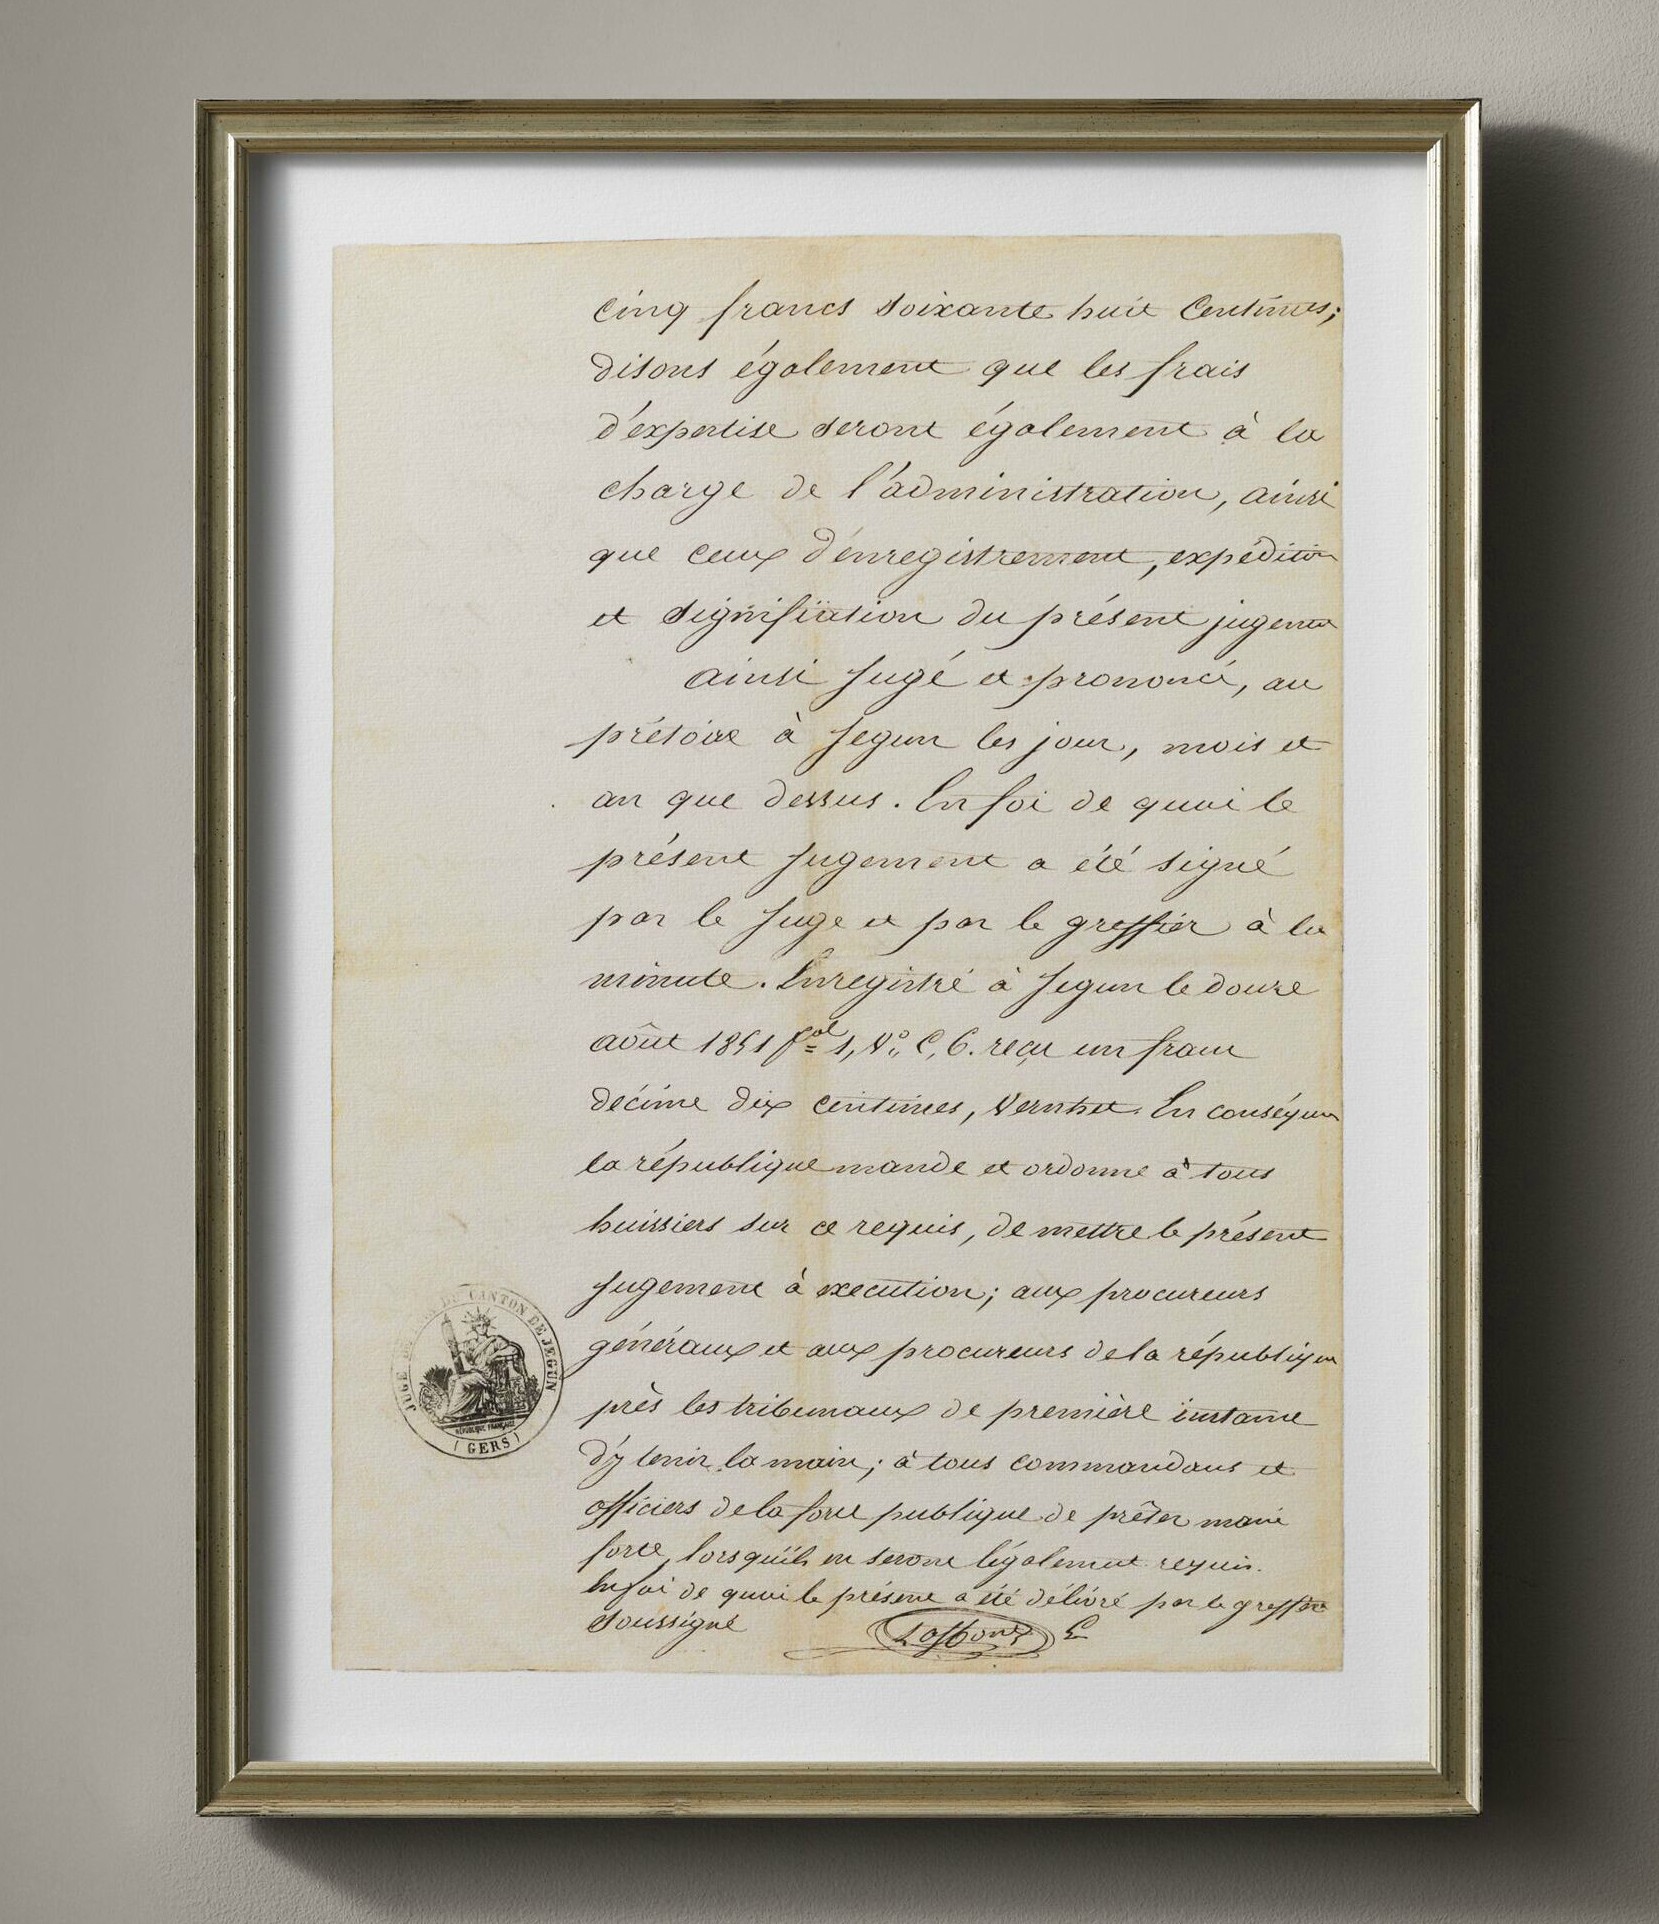 cinq francs soixante huit Centimes;
disons également que les frais
d'éxpertise seront également à la
charge de l'administration, ainsi
que ceux d'énregistrement, expédition
et signification du présent jugement
ainsi Jugé et prononcé, au
prétoire à Jegun les jour, mois et
an que dessus. En foi de quoi le
présent Jugement a été signé
par le Juge et par le greffier à la
minute. Enregistré à Jegun le douze
août 1851 fol 1, Vo, C, 6. reçu un franc
décime dix centimes, Vernhet. En conséquen
la république mande et ordonne à tous
huissiers sur ce requis, de mettre le présent
Jugement à execution; aux procureurs
généraux et aux procureurs de la république
près les tribunaux de première instance
d'y tenir la main; à tous commandans et
officiers de la force publique de prêter main
forte, lorsqu'ils en seront légalement requis.
En foi de quoi le présent a été délivré par le greffier
soussigné
JUGE DE PAIX DU CANTON DE JEGUN
RÉPUBLIQUE FRANÇAISE
(GERS)